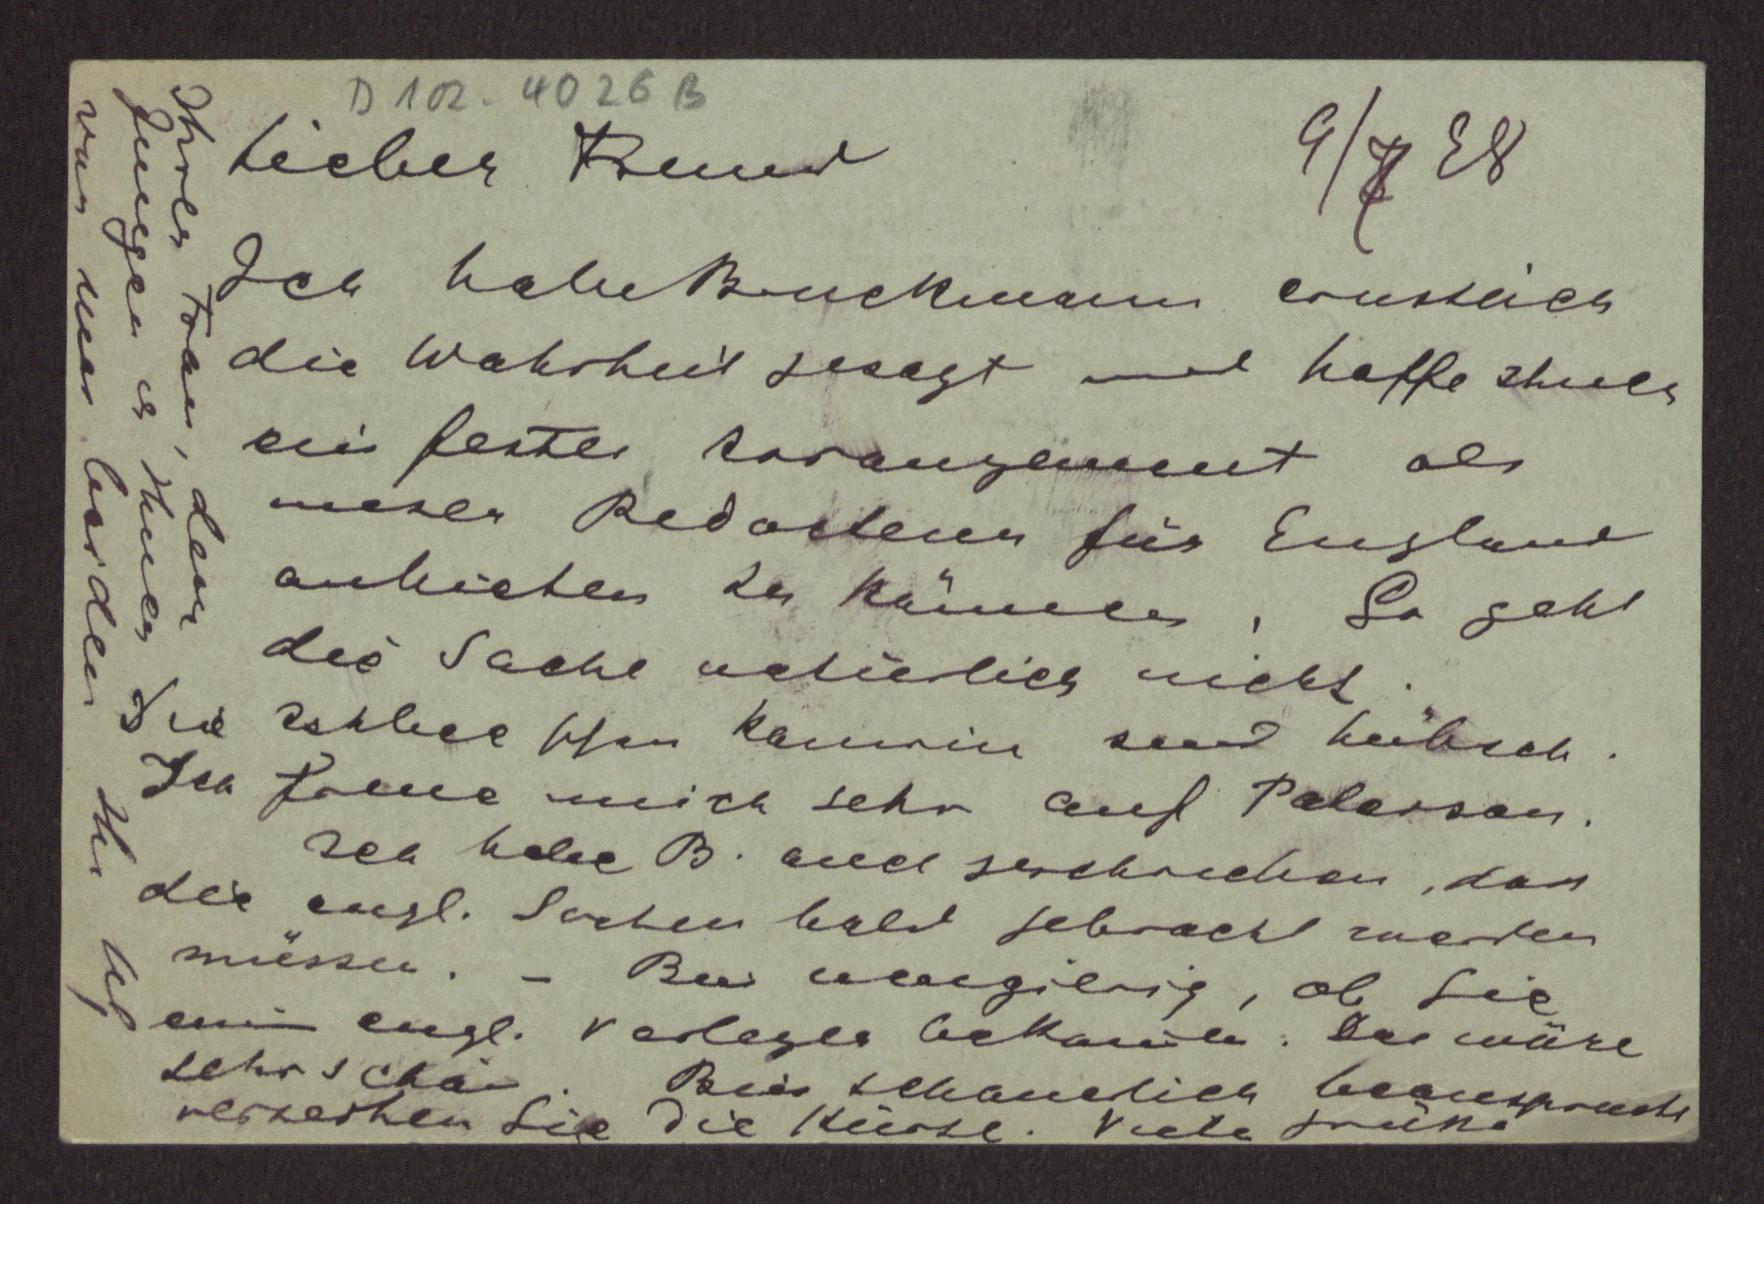 D 102. 4026 B
Lieber Freund
9/7 28
Ich habe Bruckmann ernstlich
die Wahrheit gesagt und hoffe Ihnen
ein festes Arrangement als
unser Redakteur für England
anbieten zu können, So geht
die Sache natürlich nicht.
Die sind hübsch.
Ich freue mich sehr auf Paterson.
Ich habe B. auch geschrieben, dass
die engl. Sachen bald gebracht werden
müssen. – Bin neugierig, ob Sie
ein engl. Verleger bekamen. Das wäre
sehr schön. Bin schauerlich beansprucht
verzeihen Sie die Kürze. Viele Grüsse
Ihrer Frau, dem
Jungen u Ihnen
von uns beiden Ihr